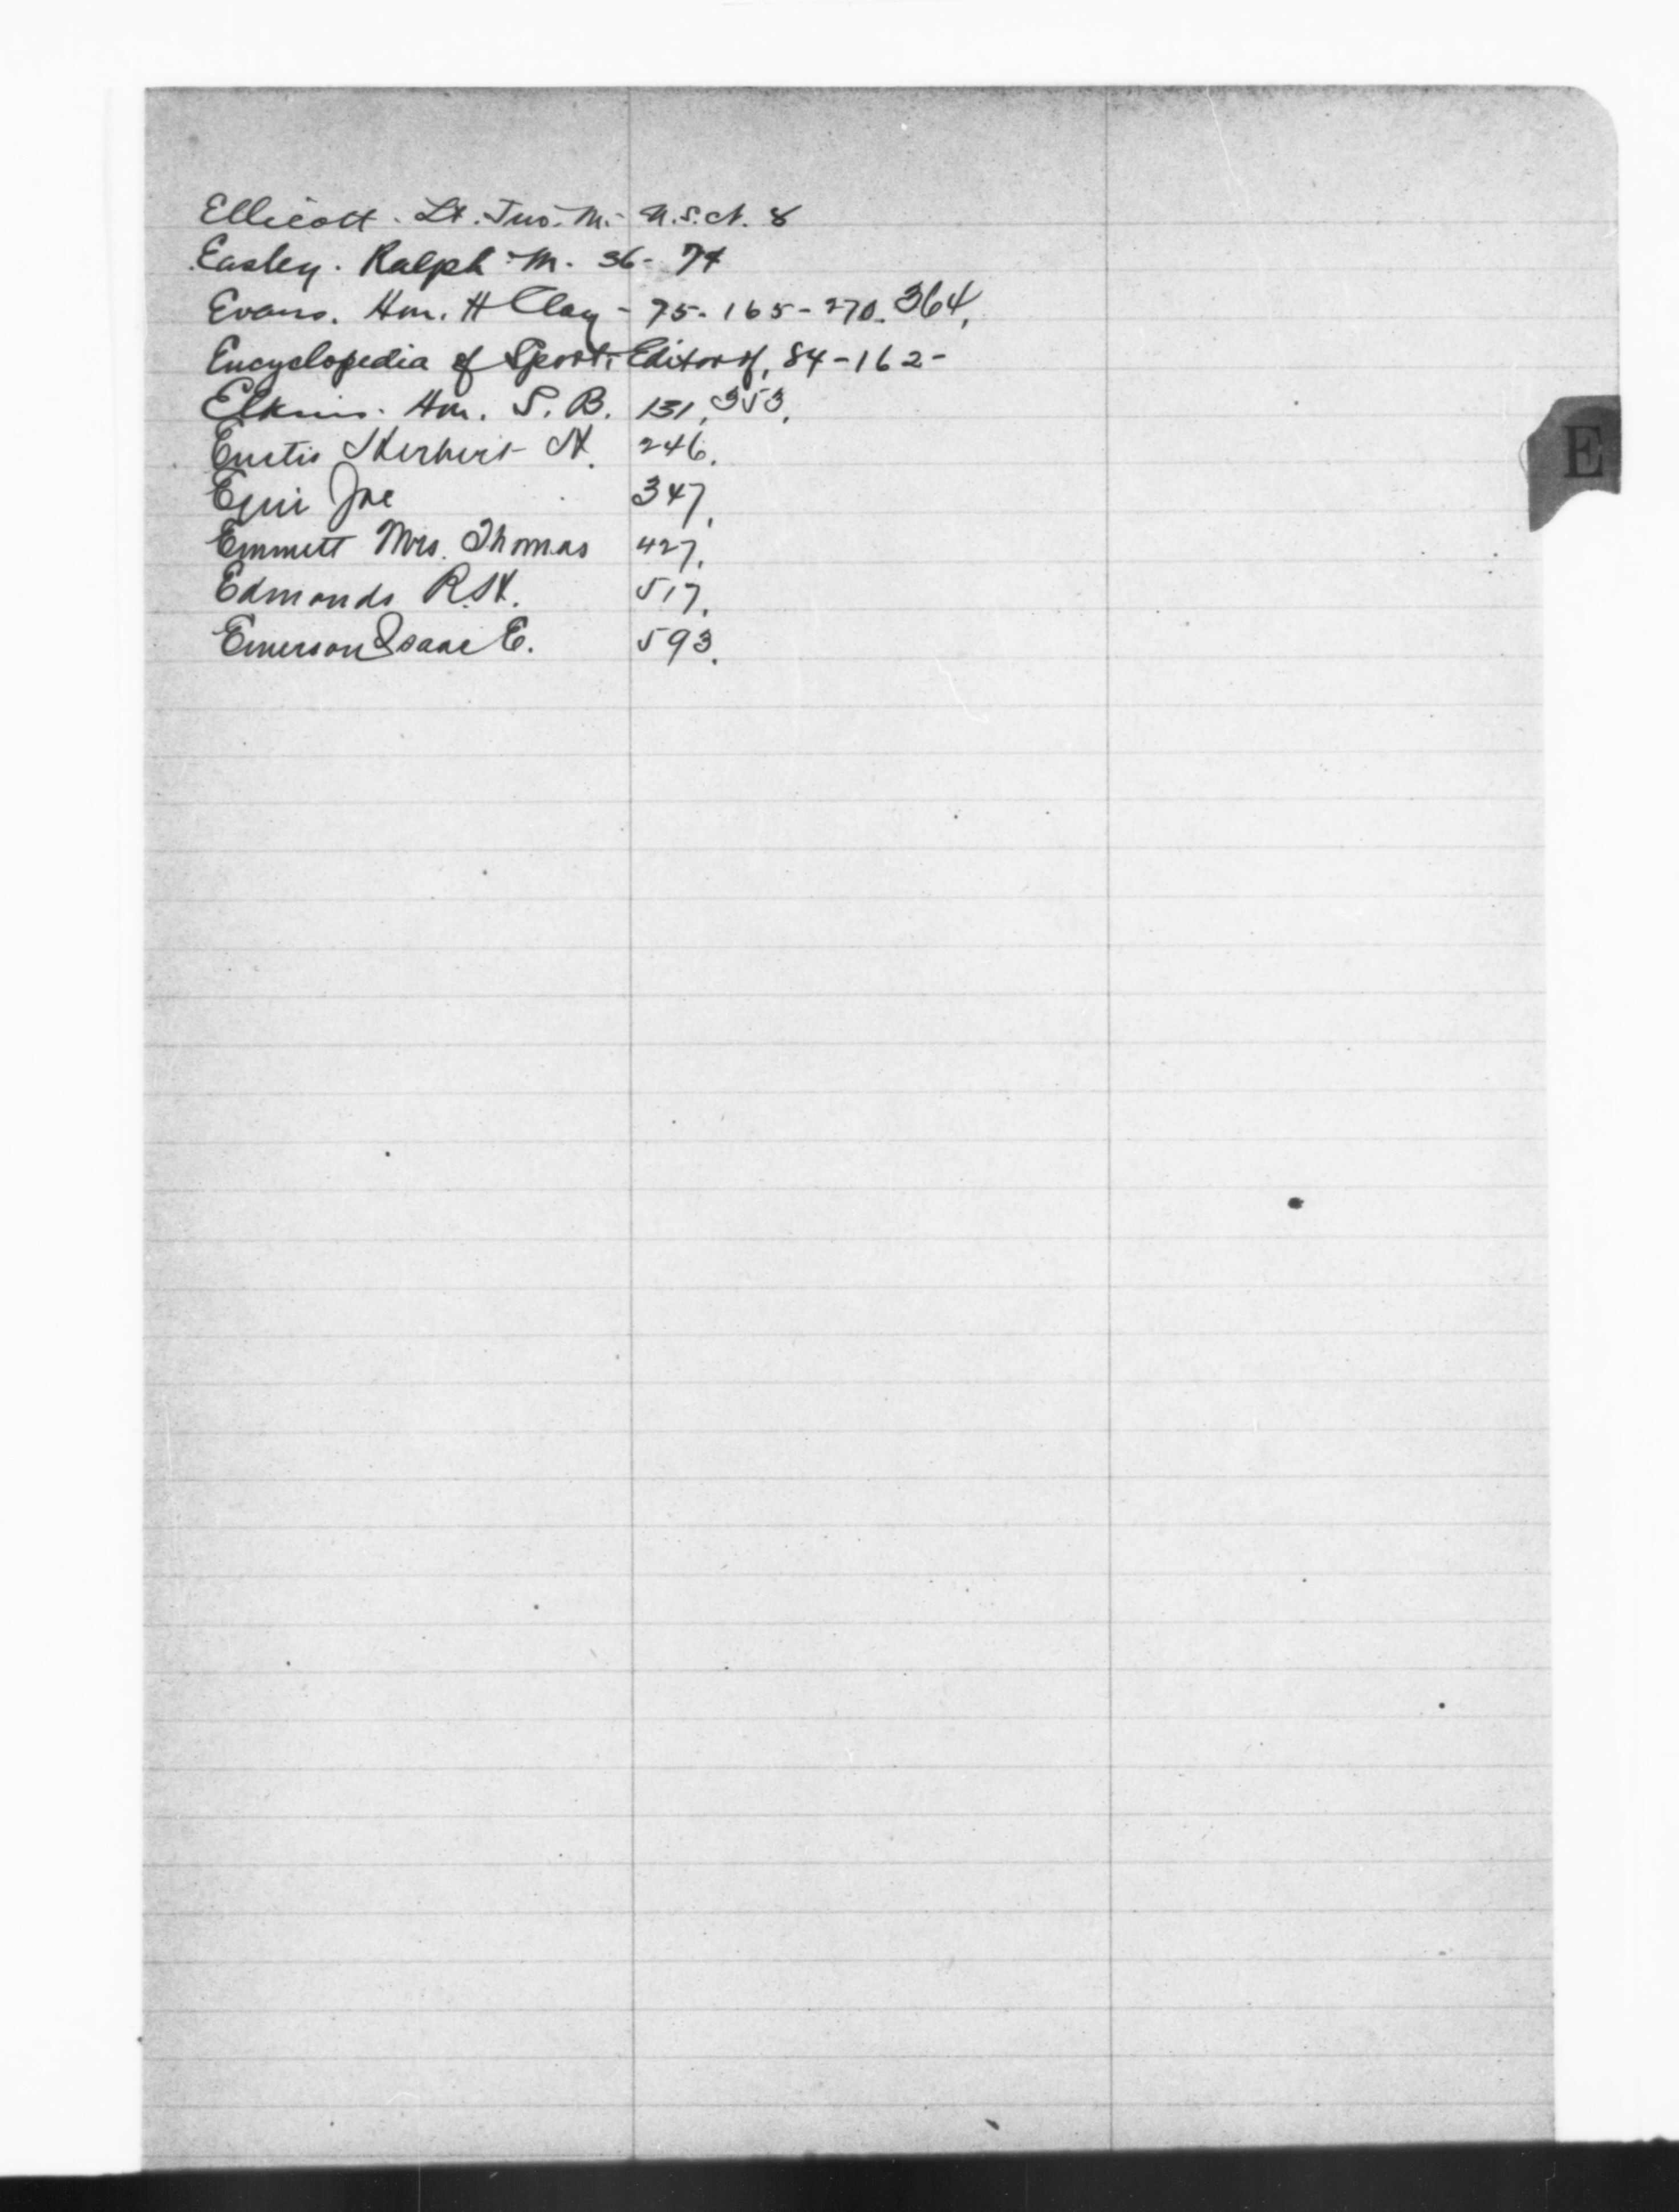 Ellicott. Lt. Jno. M. - U.S.N. 8
Easley. Ralph M. 36- 74
Evans. Hon. H Clay - 75- 165- 270. 364,
Encyclopedia of Sport, Editor of, 84-162-
Elkins. Hon. S. B. 131, 353,
E
Eustis Herbert H. 246,
Joe 347,
Emmett Mrs. Thomas 427,
Edmonds R.H. 517,
Emerson Isaac E. 593,